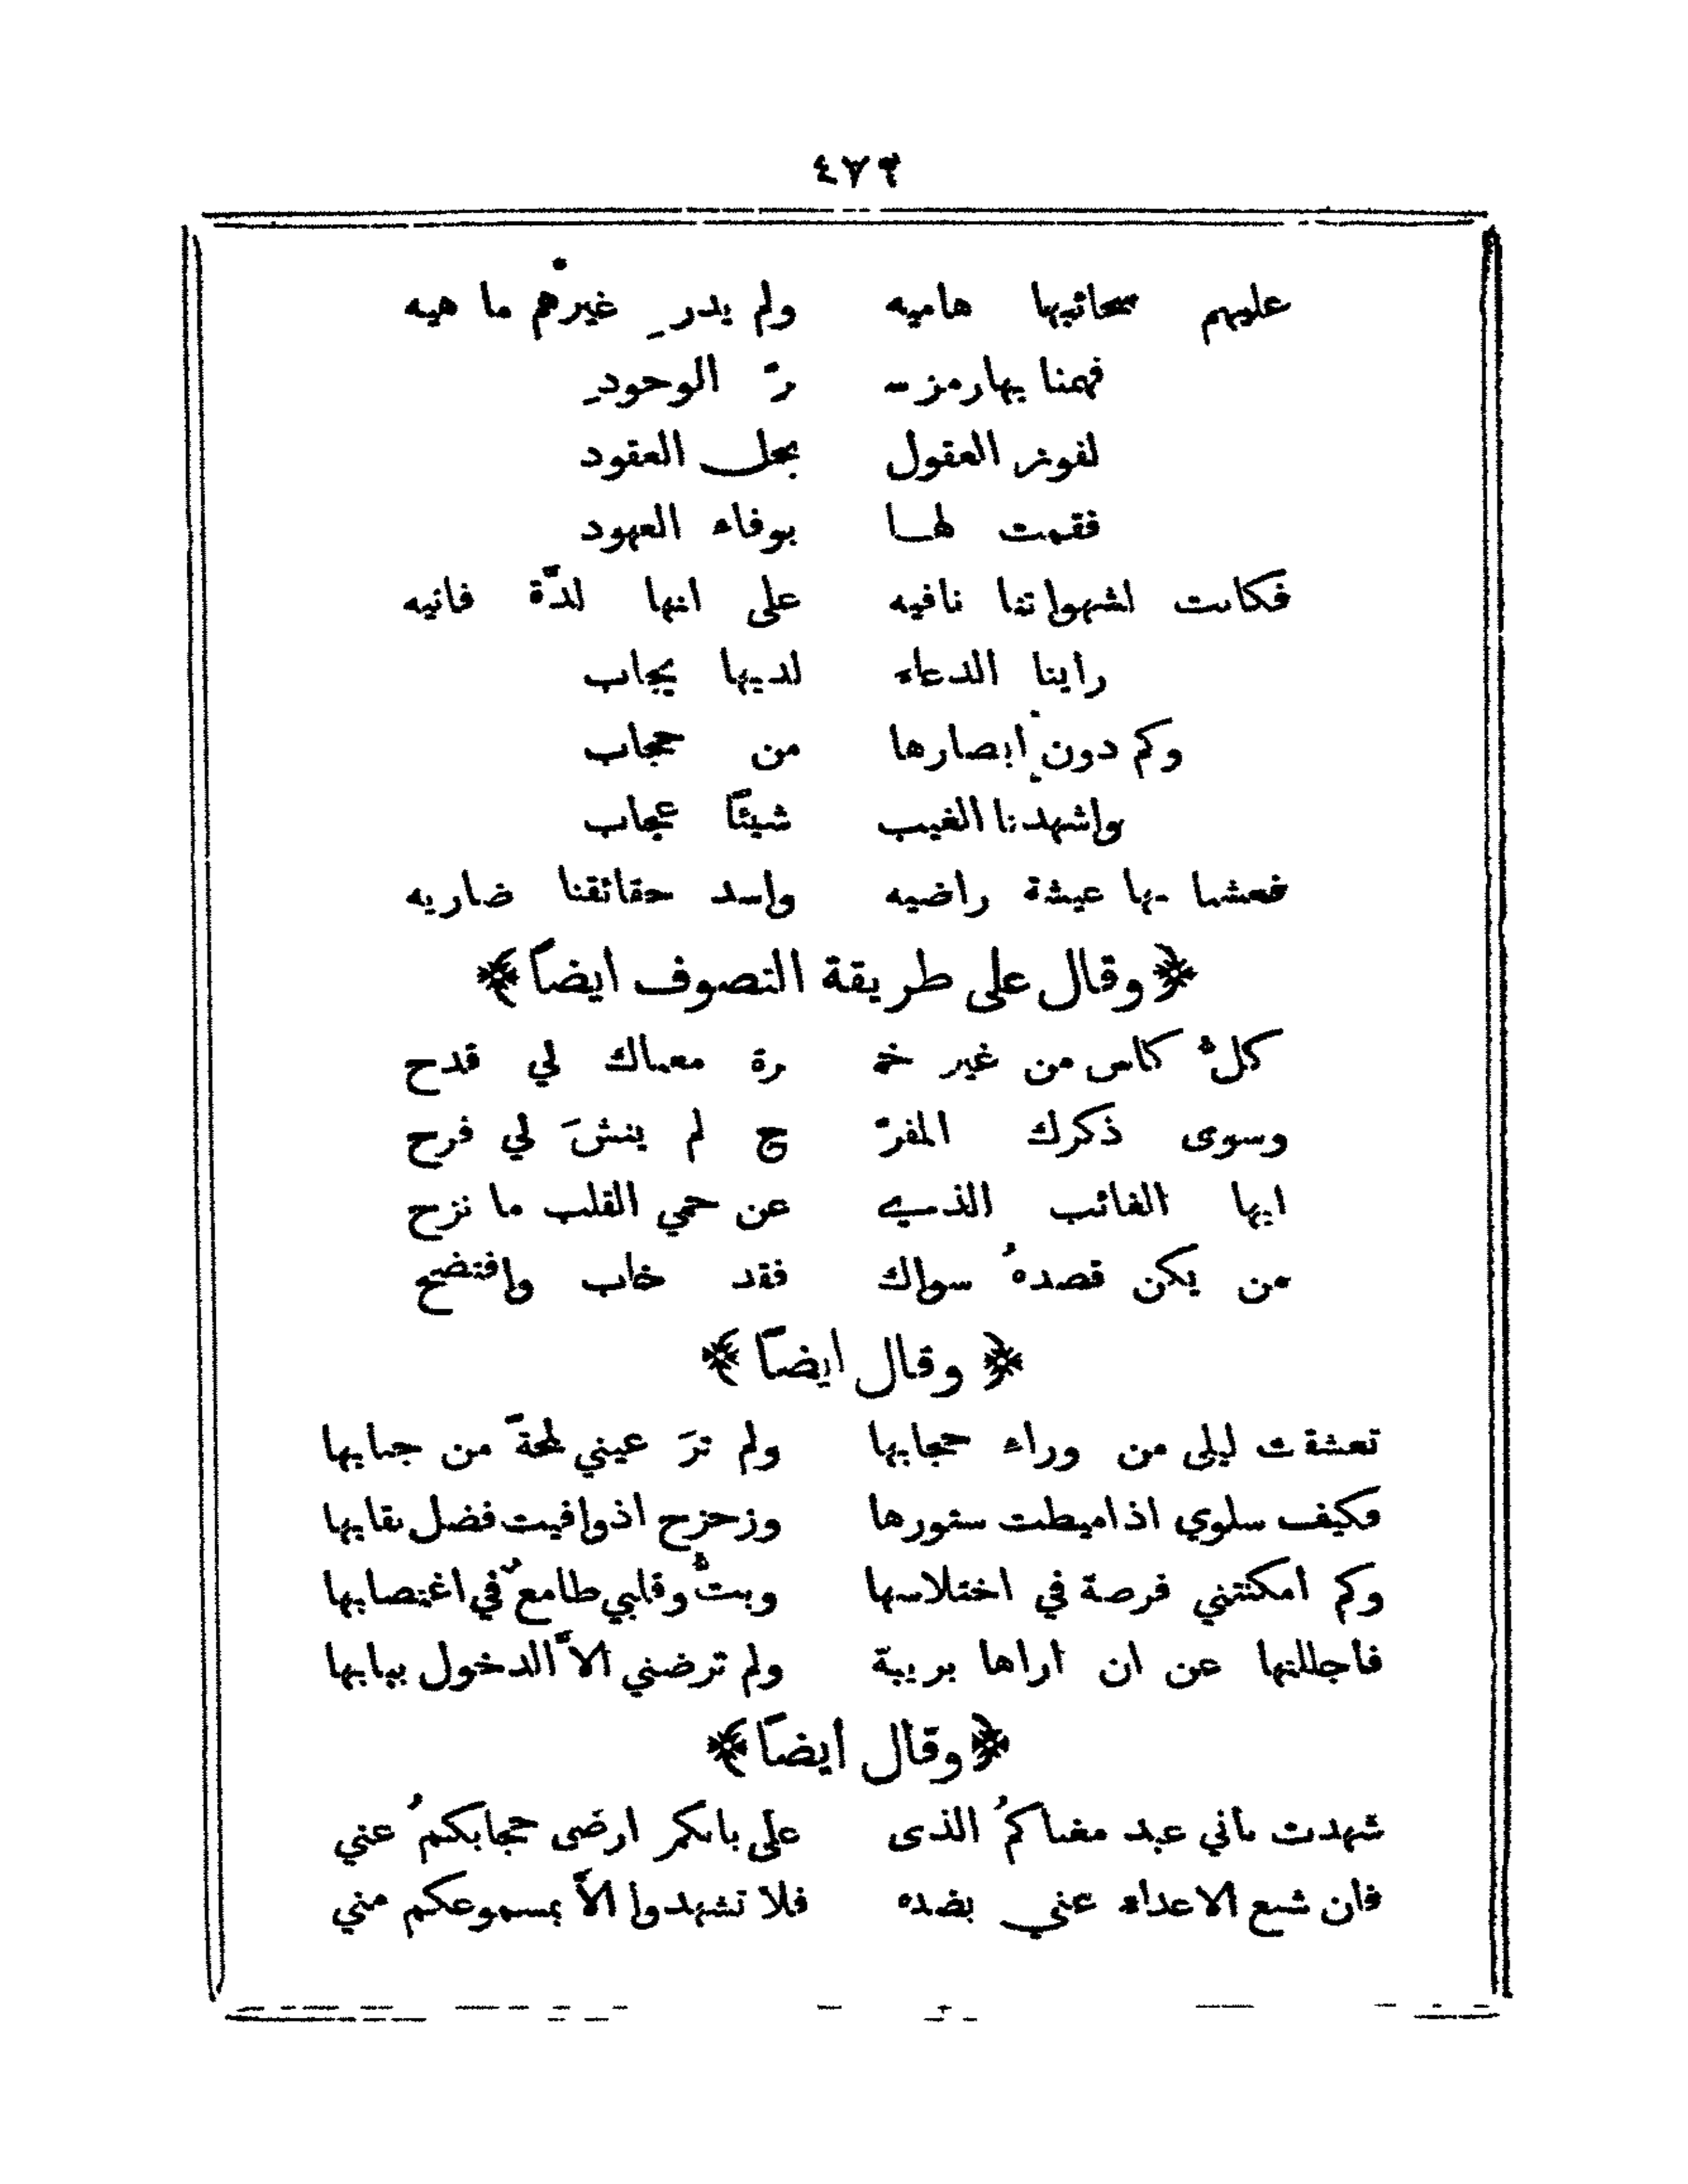 ٤٧٦
عليهم سحائبها هاميه ولم يدرِ غيرهم ما هيه
فهمنا بها رمز سـ رّ الوجودِ
لفوز العقول بحل العقود
فقمت لها بوفاء العهود
فكانت لشهواتنا نافيه على انها لذّة فانيه
راينا الدعاء لديها يجاب
وكم دون ابصارها من حجاب
واشهدنا الغيب شيئًا عجاب
فعشنا بها عيشة راضيه واسد حقائقنا ضاريه
﴿وقال على طريقة التصوف ايضاً﴾
كلُّ كاس من غير خمـ ـرة معناك لي قدح
وسوى ذكرك المفرّ ح لم ينشَ لي فرح
ايها الغائب الذي عن حمي القلب ما نزح
من يكن قصدهُ سواك فقد خاب وافتضح
﴿وقال ايضاً﴾
تعشقت ليلى من وراء حجابها ولم ترَ عيني لمحةً من جنابها
فكيف سلوي اذا ميطت ستورها وزحزح اذ وافيت فضل نقابها
وكم امكنتني فرصة في اختلاسها وبتُّ وقلبي طامعٌ في اغتصابها
فاجللتها عن ان اراها بريبة ولم ترضني الاَّ الدخول ببابها
﴿وقال ايضاً﴾
شهدت باني عبد مغناكمُ الذى على بابكم ارضى حجابكمُ عني
فان شيع الاعداء عني بضده فلا تشهدوا الاَّ بمسموعكم مني